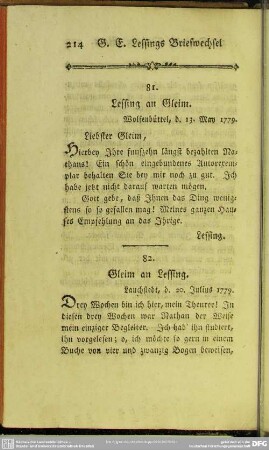 214 G. E. Lessings Briefwechsel
81.
Lessing an Gleim.
Wolfenbüttel, d. 13. May 1779.
Liebster Gleim,
Hierbey Ihre funfzehn längst bezahlten Na-
thans! Ein schön eingebundenes Autorexem-
plar behalten Sie bey mir noch zu gut. Ich
habe jetzt nicht darauf warten mögen.
Gott gebe, daß Ihnen das Ding wenig-
stens so so gefallen mag! Meines ganzen Hau-
ses Empfehlung an das Ihrige.
Lessing.
82.
Gleim an Lessing.
Lauchstedt, d. 20. Julius 1779.
Drey Wochen bin ich hier, mein Theurer! In
diesen drey Wochen war Nathan der Weise
mein einziger Begleiter. Ich hab' ihn studiert,
ihn vorgelesen; o, ich möchte so gern in einem
Buche von vier und zwanzig Bogen beweisen,